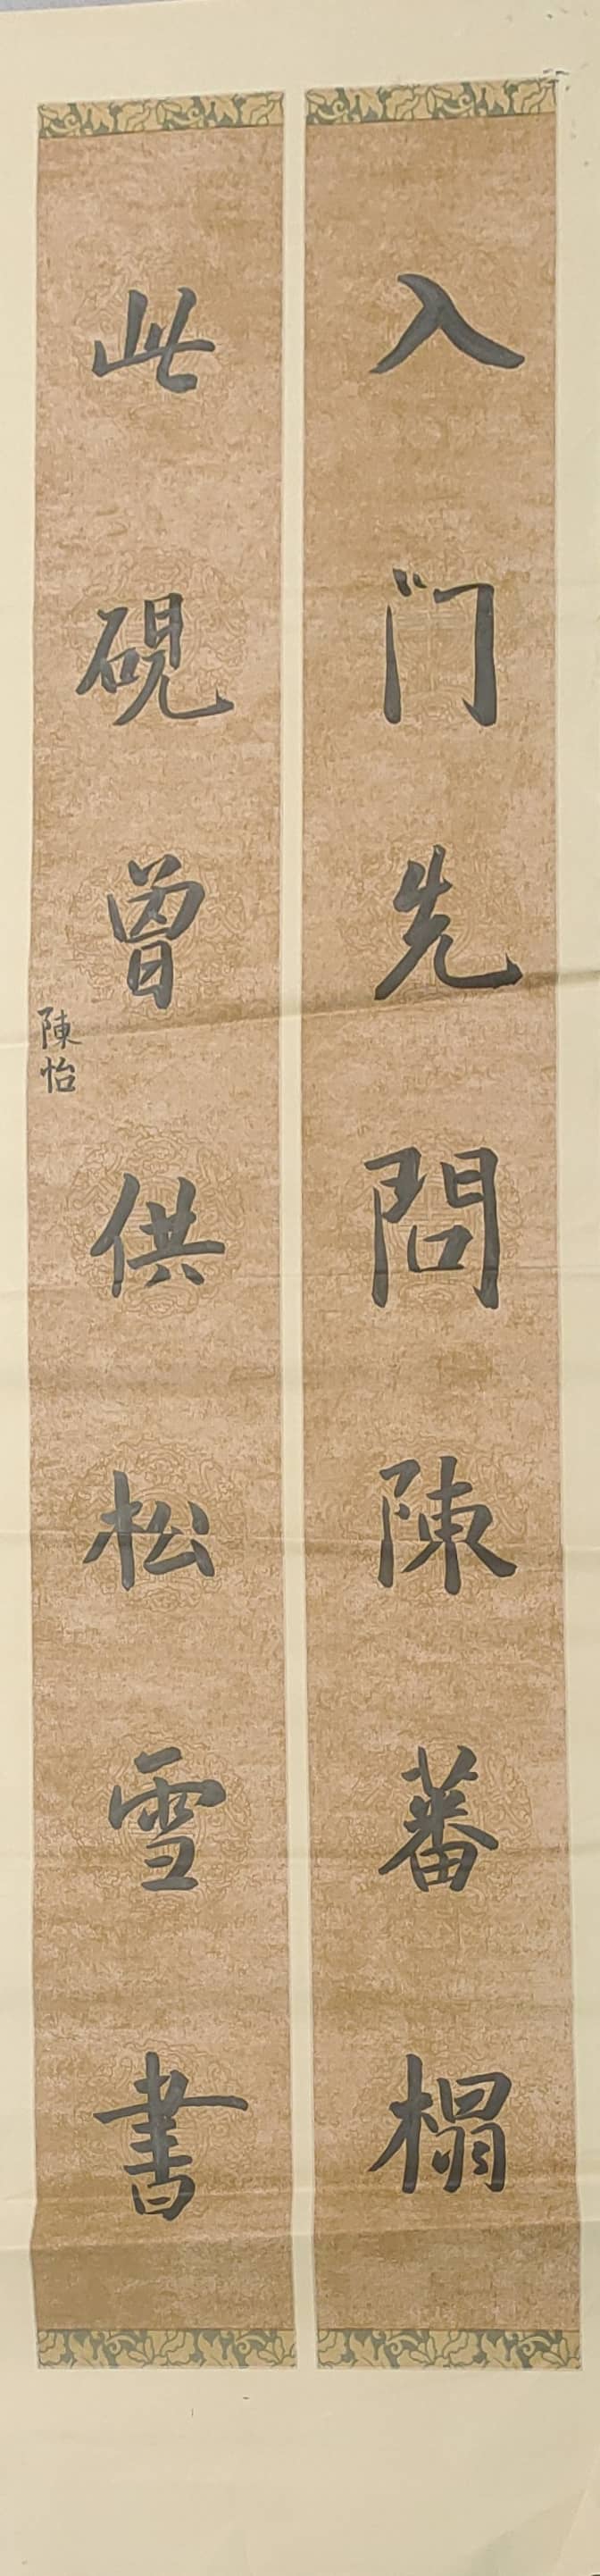 入门先問陳蕃榻
此硯曾供松雪書
陳怡